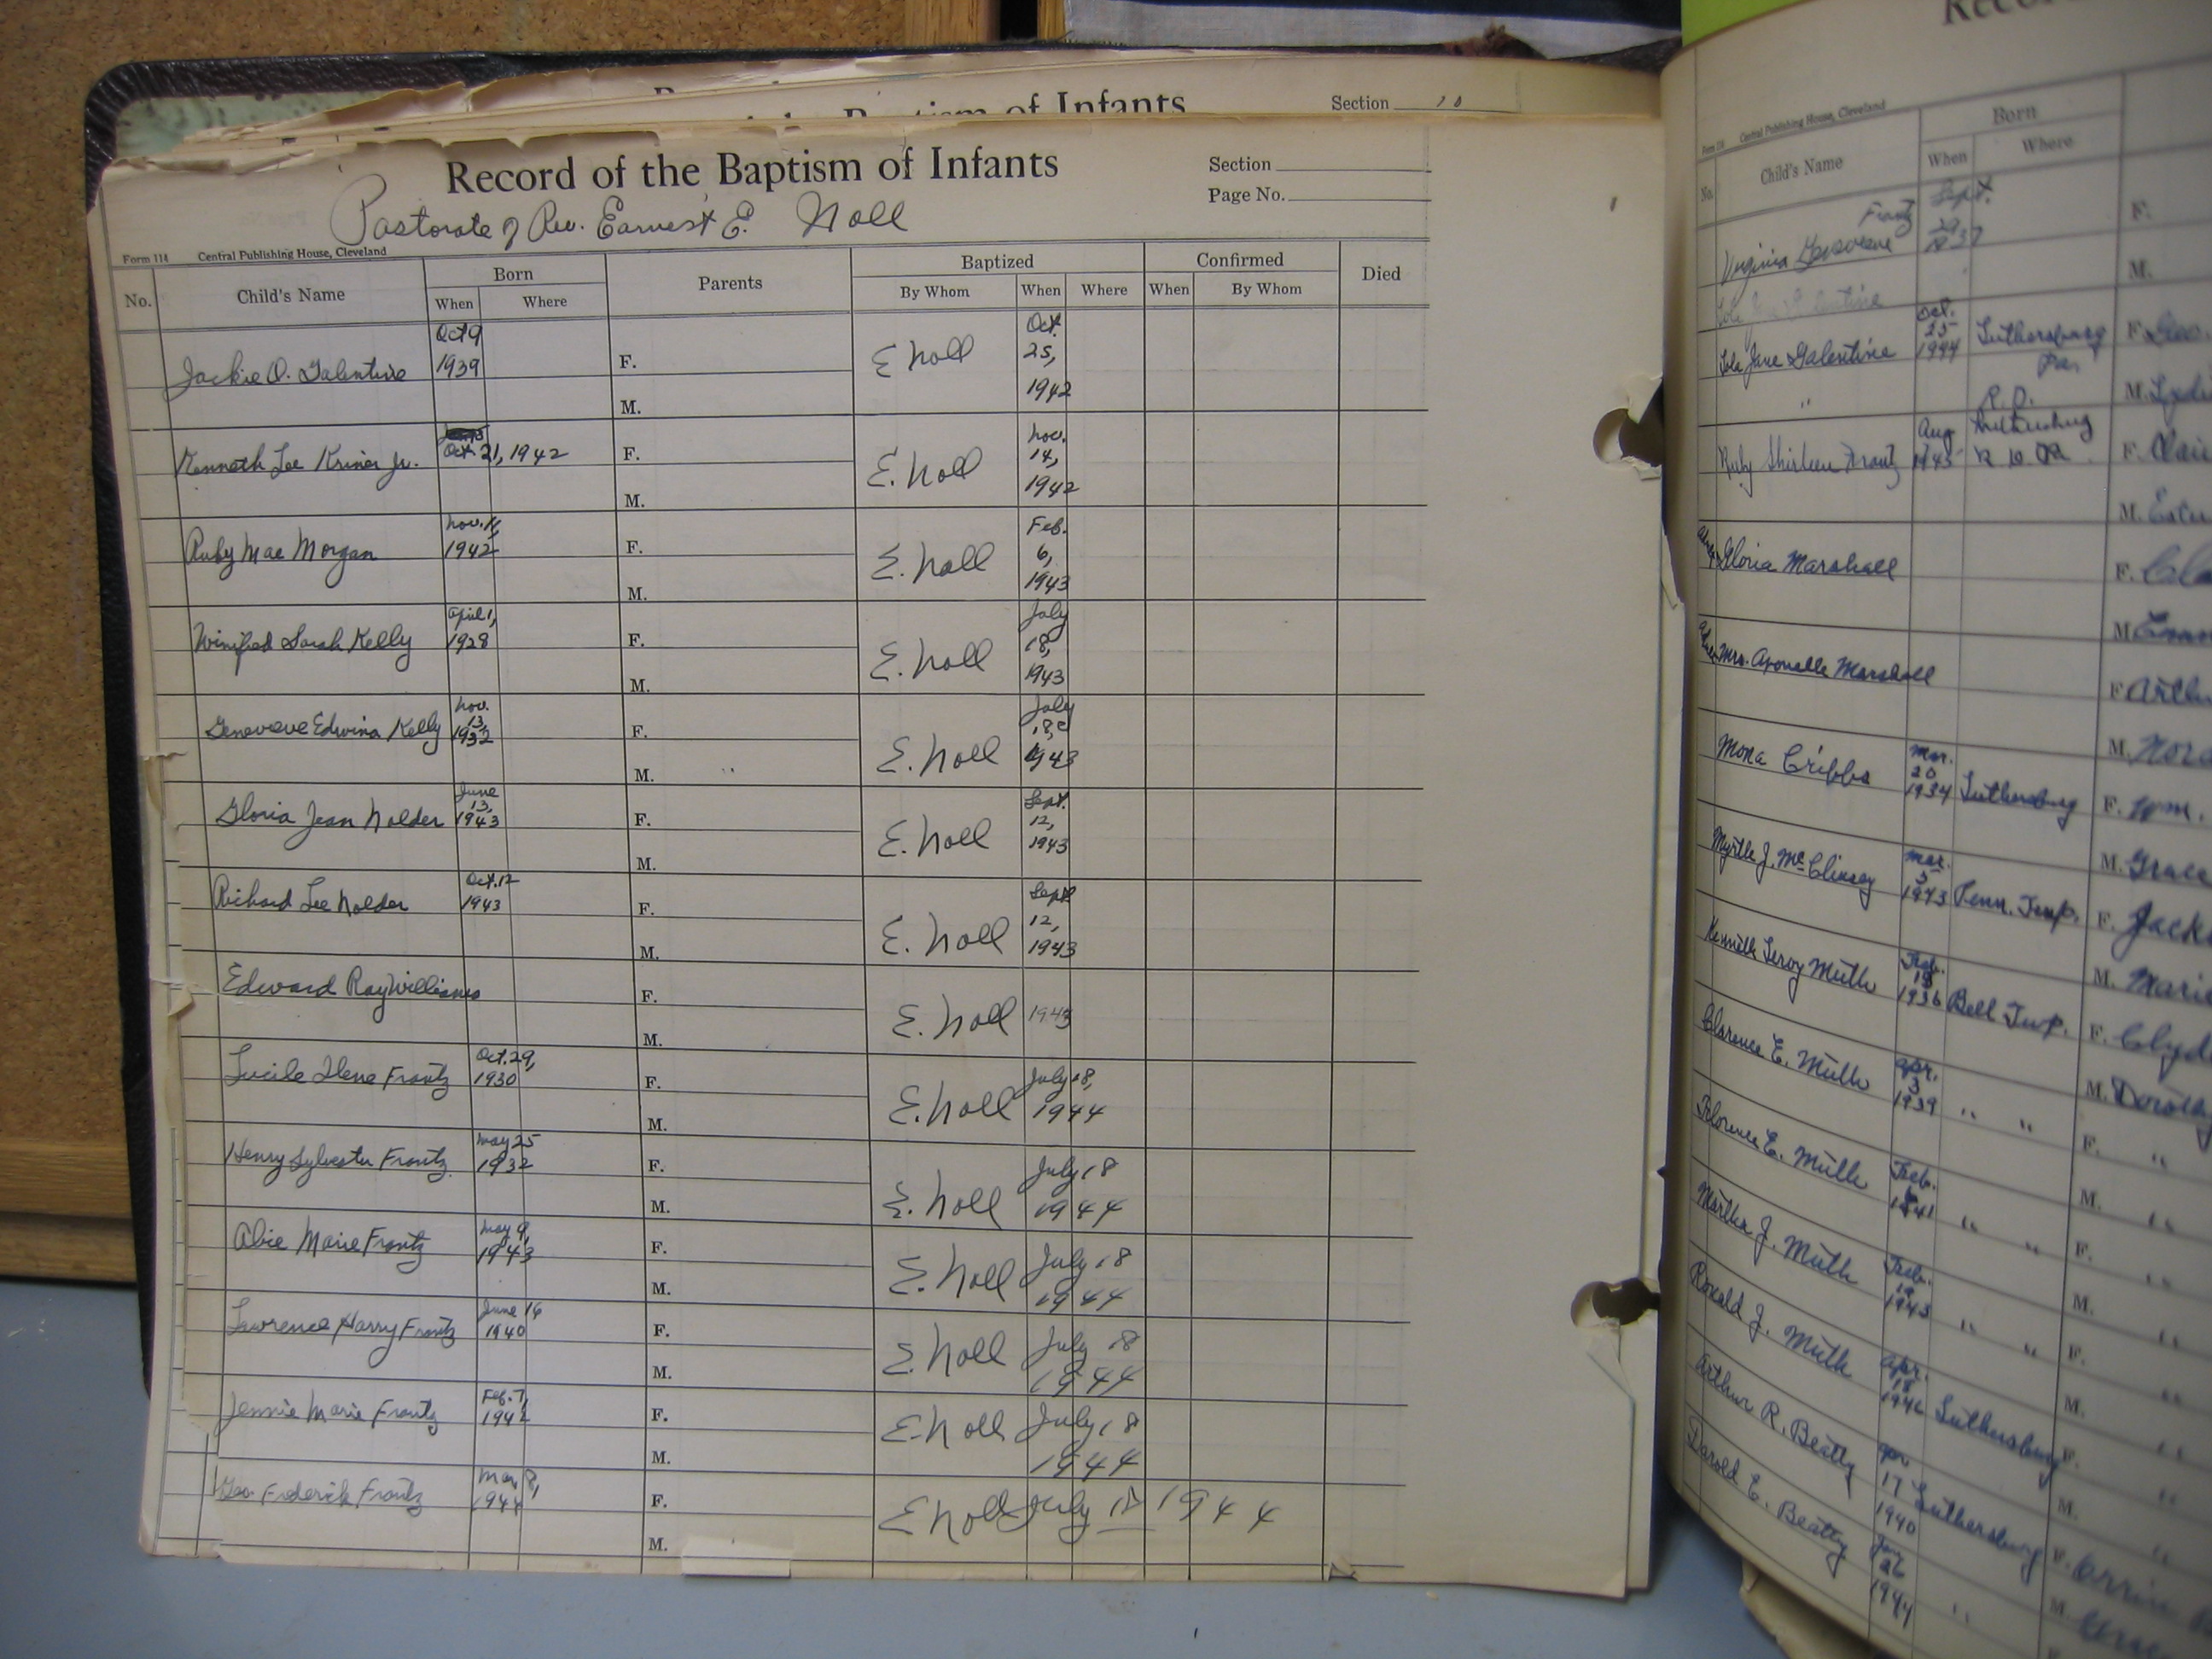 of Infants
Section 10
Record of the Baptism of Infants
Section
Page No.
Pastorate of Rev. Earnest E. Noll
Form 114 Central Publishing House, Cleveland
No. Child's Name Born Parents Baptized Confirmed Died
When Where By Whom When Where When By Whom
Jackie O. Galentine Oct 9 1939 F. M. E Noll Oct. 25, 1942
Kenneth Lee Kriner Jr. Oct 21, 1942 F. M. E. Noll Nov. 14, 1942
Ruby Mae Morgan Nov. 11, 1942 F. M. E. Noll Feb. 6, 1943
Winifred Sarah Kelly April 1, 1928 F. M. E. Noll July 18, 1943
Genevieve Edwina Kelly Nov. 13, 1932 F. M. E. Noll July 18, 1943
Gloria Jean Nolder June 13, 1943 F. M. E. Noll Sept. 12, 1943
Richard Lee Nolder Oct. 12 1943 F. M. E. Noll Sept 12, 1943
Edward Ray Williams F. M. E. Noll 1943
Lucile Ilene Frantz Oct. 29, 1930 F. M. E. Noll July 18, 1944
Henry Sylvester Frantz May 25 1932 F. M. E. Noll July 18 1944
Marie Frantz May 9, 1943 F. M. E. Noll July 18 1944
Lawrence Harry Frantz June 16 1940 F. M. E. Noll July 18 1944
Jennie Marie Frantz Feb. 7, 1942 F. M. E. Noll July 18 1944
Geo. Frederick Frantz Mar 8, 1944 F. M. E Noll July 18 1944
Form 114 Central Publishing House, Cleveland
No. Child's Name Born
When Where
Virginia Genevieve Frantz Sept. 1937 F. M.
Lola Jane Galentine Oct. 25 1944 Luthersburg Pa. R.D. F. Geo. M.
Ruby Shirleen Frantz Aug 1945 Luthersburg R.D. F. M.
Gloria Marshall F. M.
Mrs. Marshall F. M. Nora
Mona Cribbs Mar. 20 1934 Luthersburg F. Wm. M. Grace
Myrtle J. McClinsey Mar. 5 1943 Penn. Twp. F. M.
Kenneth Leroy Muth Feb. 1936 Bell Twp. F. M.
Clarence E. Muth Apr. 3 1939 " " F. " M. "
Florence E. Muth Feb. 1941 " " F. " M. "
Martha J. Muth Feb. 1943 " " F. " M. "
Ronald J. Muth Apr. 18 1946 Luthersburg F. M. "
Arthur R. Beatty Apr 17 1940 Luthersburg F. M.
Darold E. Beatty Jan 26 1944 "